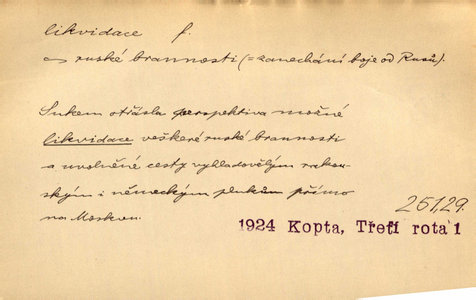 likvidace f.
~ ruské brannosti (= zanechání boje od Rusů).
Sukem otřásla perspektiva možné
likvidace veškeré ruské brannosti
a uvolněné cesty vyhladovělým rakou-
ským i německým plukům přímo
na Moskvu.
251,29.
1924 Kopta, Třetí rota 1